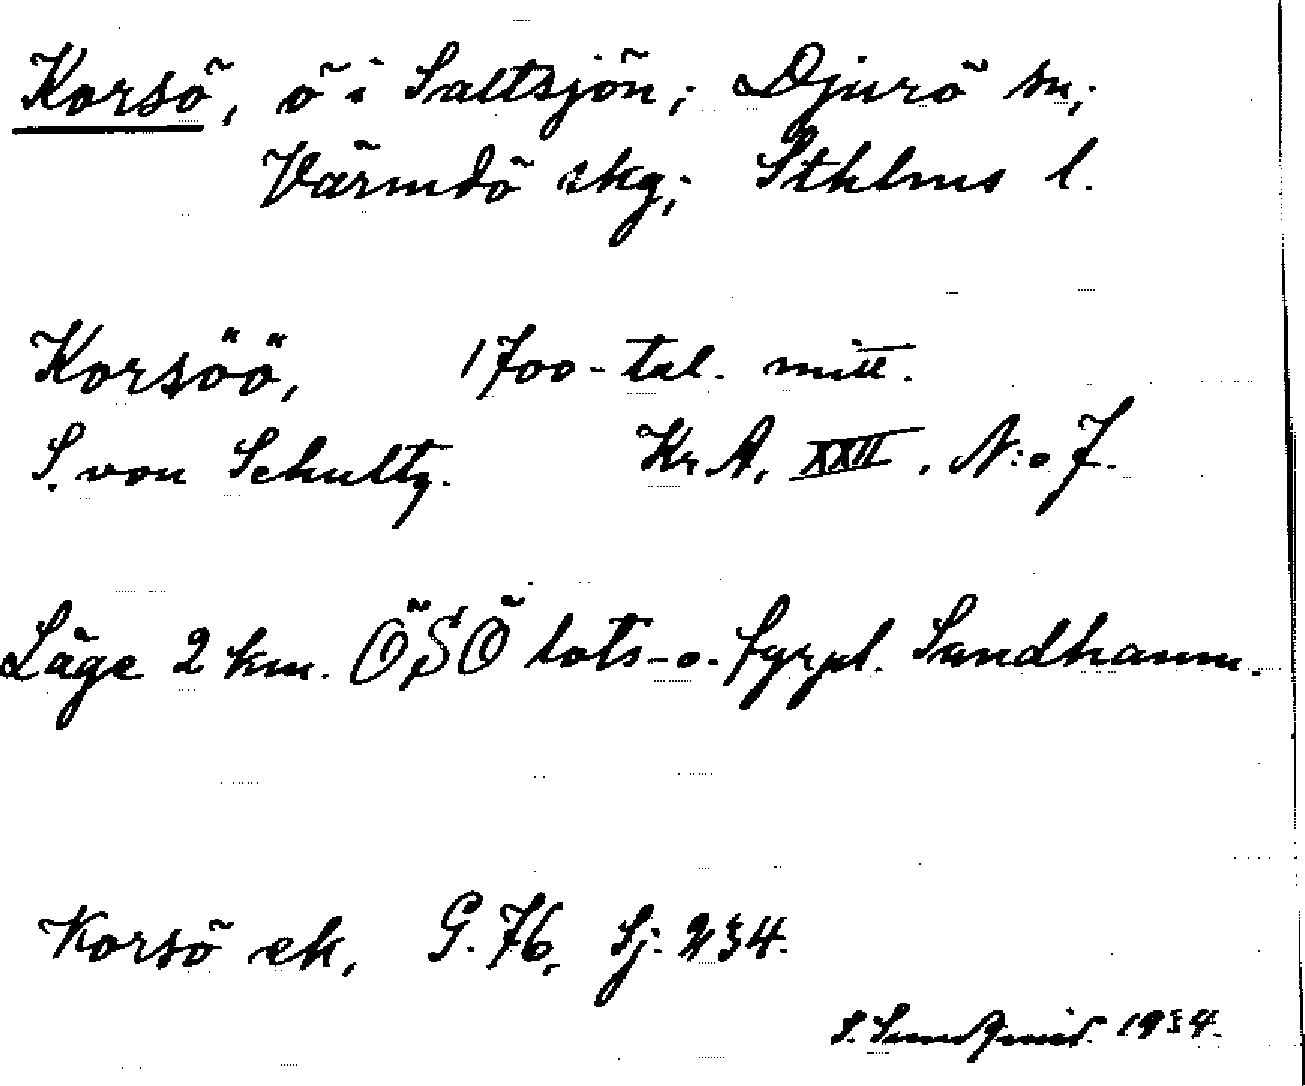 Korsö, ö i Saltsjön; Djurö sn;
Värmdö skg; Sthlms l.
Korsöö, 1700-tal. mitt.
S. von Schultz. Kr. A. XXII. N:o 7.
Läge 2 km. ÖSÖ lots- o. fyrpl. Sandhamn.
Korsö ek, G. 76, Sj. 234.
S. Sundqvist. 1934.